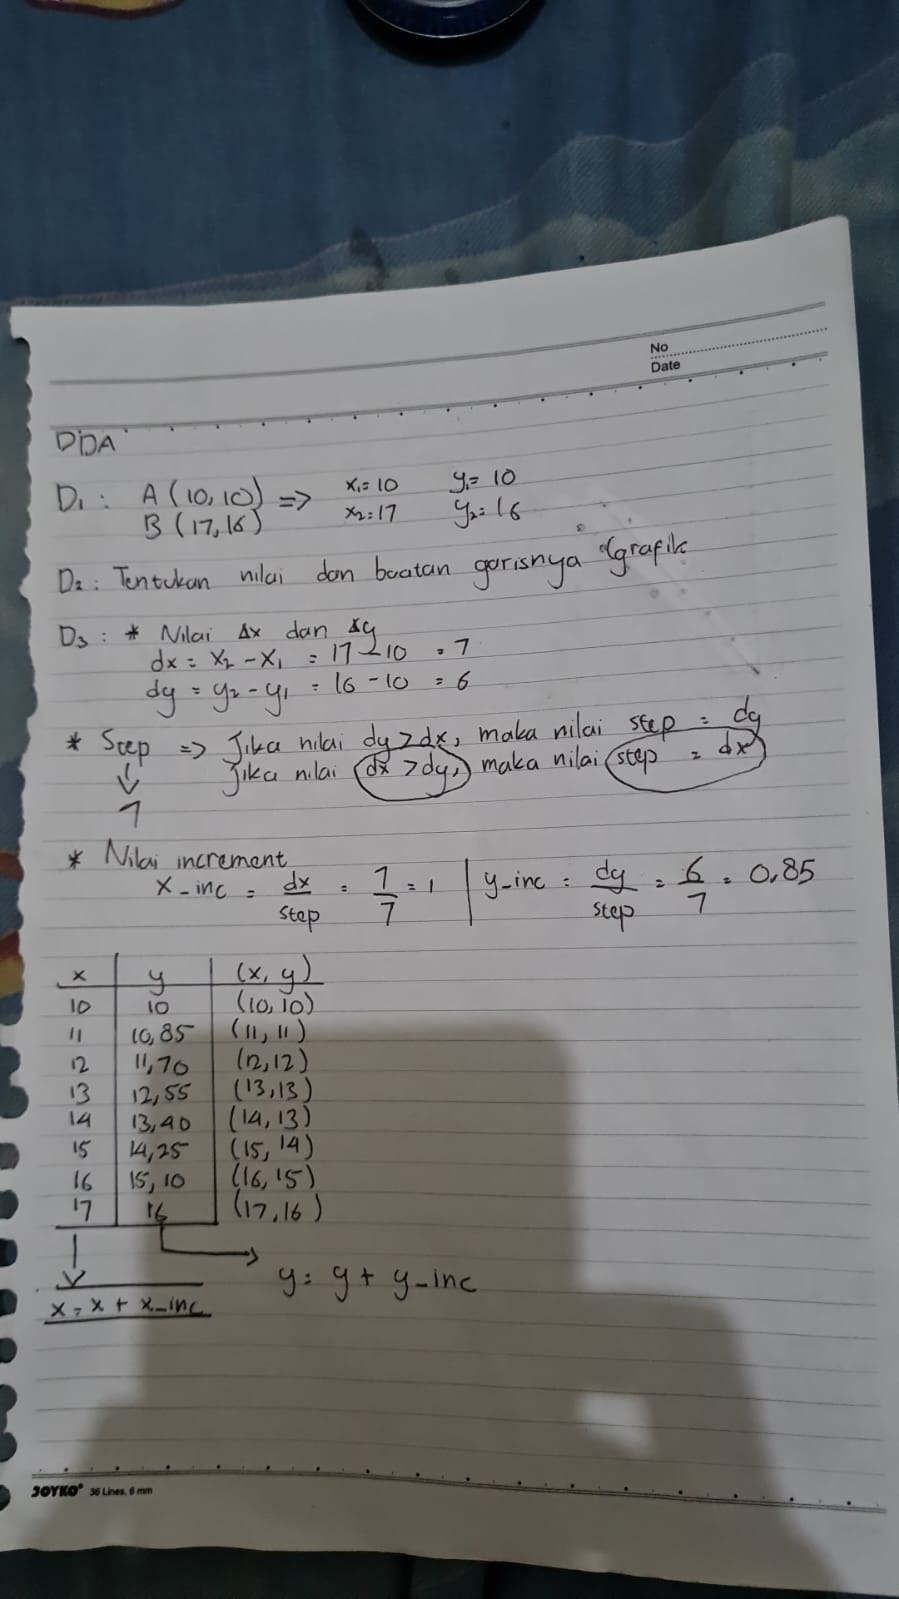 No
Date
DDA
D1 : A (10, 10) => x1 = 10 y1 = 10
B (17, 16) x2 = 17 y2 = 16
D2 : Tentukan nilai dan buatan garisnya grafik
D3 : * Nilai Δx dan Δy
dx = x2 - x1 = 17 - 10 = 7
dy = y2 - y1 = 16 - 10 = 6
* Step => Jika nilai dy > dx, maka nilai step = dy
Jika nilai dx > dy, maka nilai step = dx
7
* Nilai increment
x_inc = dx/step = 7/7 = 1 | y_inc = dy/step = 6/7 = 0,85
x | y | (x, y)
10 | 10 | (10, 10)
11 | 10,85 | (11, 11)
12 | 11,70 | (12, 12)
13 | 12,55 | (13, 13)
14 | 13,40 | (14, 13)
15 | 14,25 | (15, 14)
16 | 15,10 | (16, 15)
17 | 16 | (17, 16)
y = y + y_inc
x = x + x_inc
JOYKO 36 Lines, 6 mm